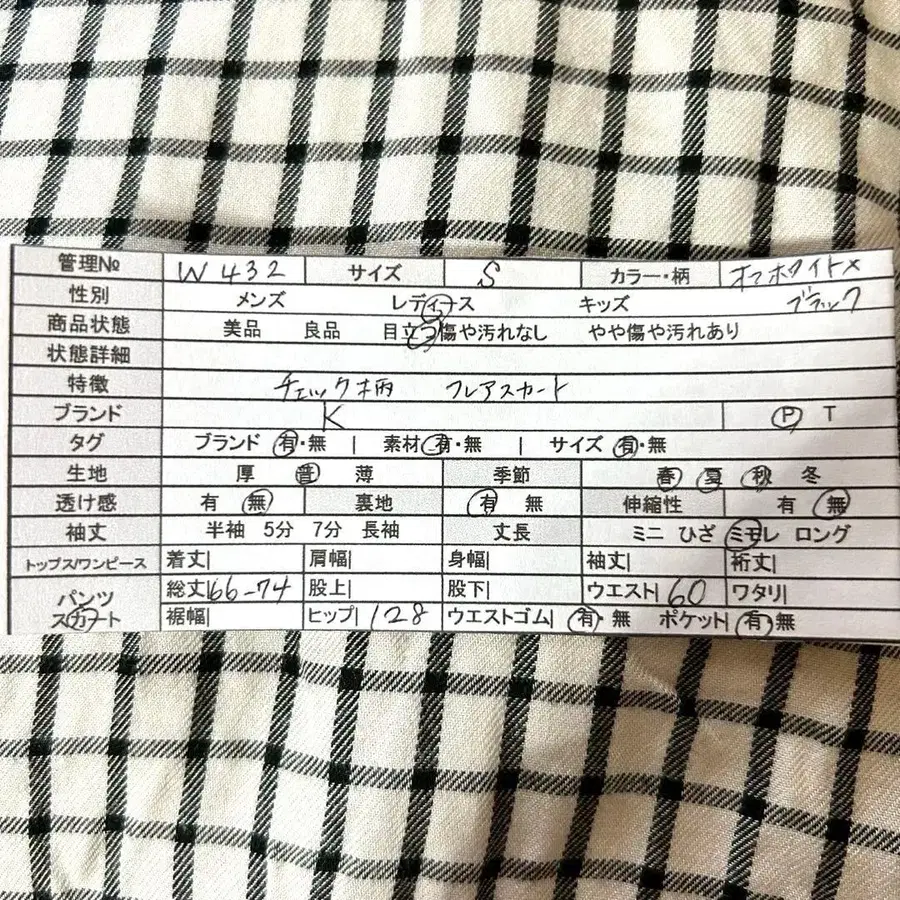 管理№ W432 サイズ S カラー・柄 オフホワイト×
性別 メンズ レディース キッズ ブラック
商品状態 美品 良品 目立つ傷や汚れなし やや傷や汚れあり
状態詳細
特徴 チェック柄 フレアスカート
ブランド K P T
タグ ブランド 有・無 | 素材 有・無 | サイズ 有・無
生地 厚 普 薄 季節 春 夏 秋 冬
透け感 有 無 裏地 有 無 伸縮性 有 無
袖丈 半袖 5分 7分 長袖 丈長 ミニ ひざ ミモレ ロング
トップス/ワンピース 着丈| 肩幅| 身幅| 袖丈| 裄丈|
パンツ 総丈|66-74 股上| 股下| ウエスト|60 ワタリ|
スカート 裾幅| ヒップ|128 ウエストゴム| 有・無 ポケット| 有・無